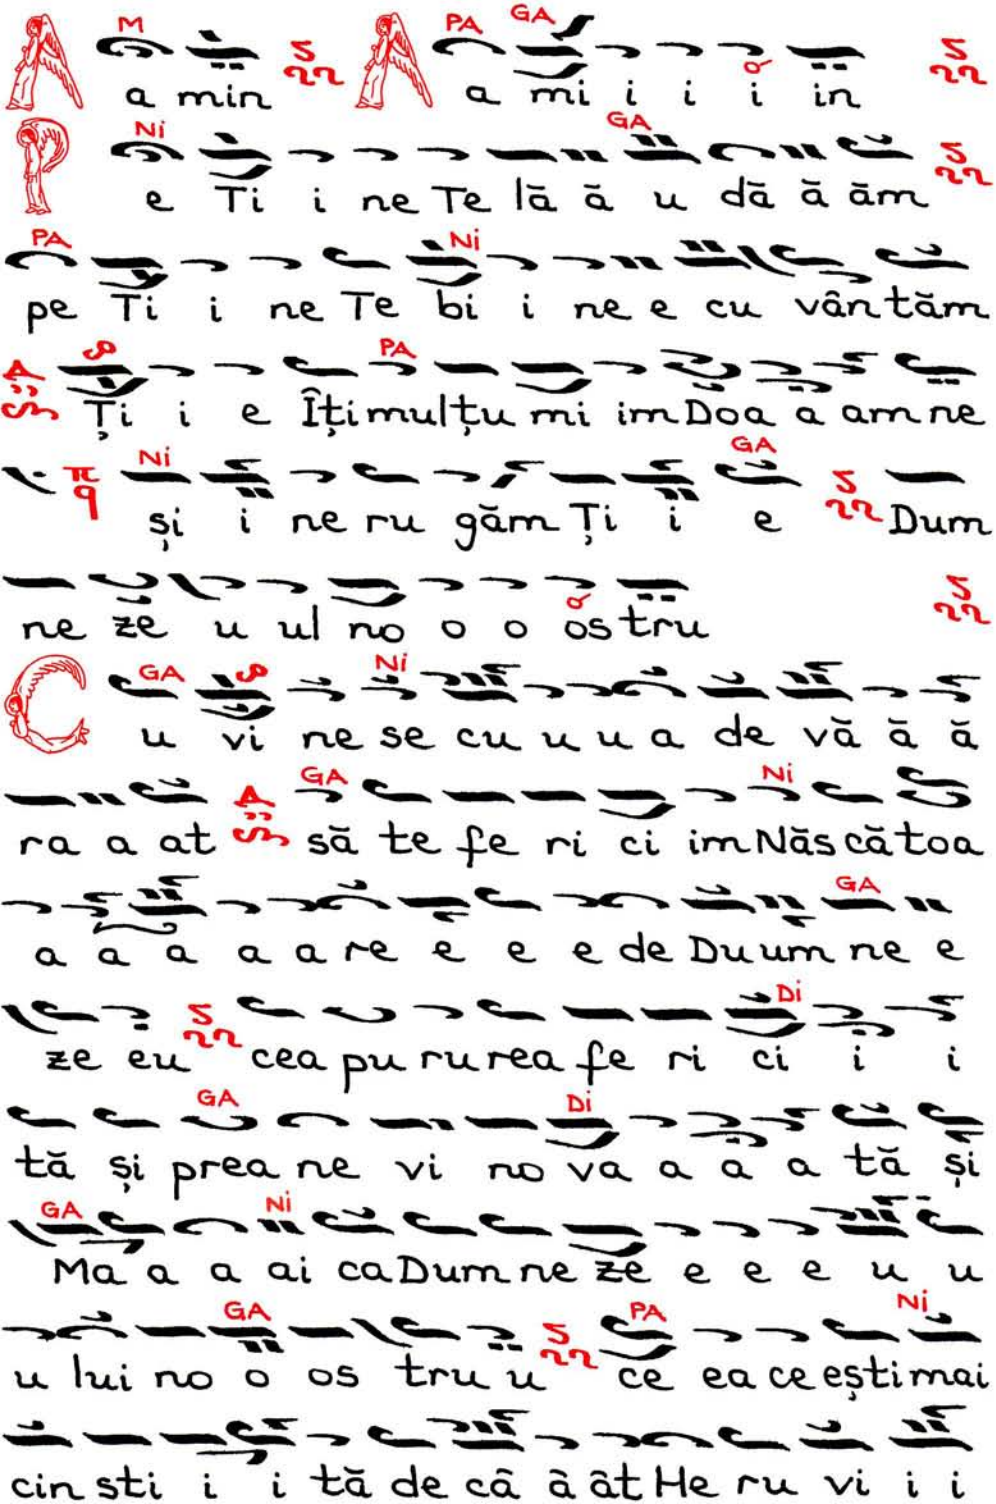 M PA GA
A a min A a mi i i i in
Ni GA
P e Ti i ne Te lă ă u dă ă ăm
PA Ni
pe Ti i ne Te bi i ne e cu vân tăm
PA
Ți i e Îți mulțu mi im Doa a am ne
Ni GA
π q și i ne ru găm Ți i e Dum
ne ze u ul no o o os tru
GA Ni
C u vi ne se cu u u a de vă ă ă
GA Ni
ra a at să te fe ri ci im Năs că toa
GA
a a a a a re e e e de Du um ne e
Di
ze eu cea pu ru rea fe ri ci i i
GA Di
tă și prea ne vi no va a a a tă și
GA Ni
Ma a a ai ca Dum ne ze e e e u u
GA PA Ni
u lui no o os tru u ce ea ce ești mai
cin sti i i tă de câ â ât He ru vi i i